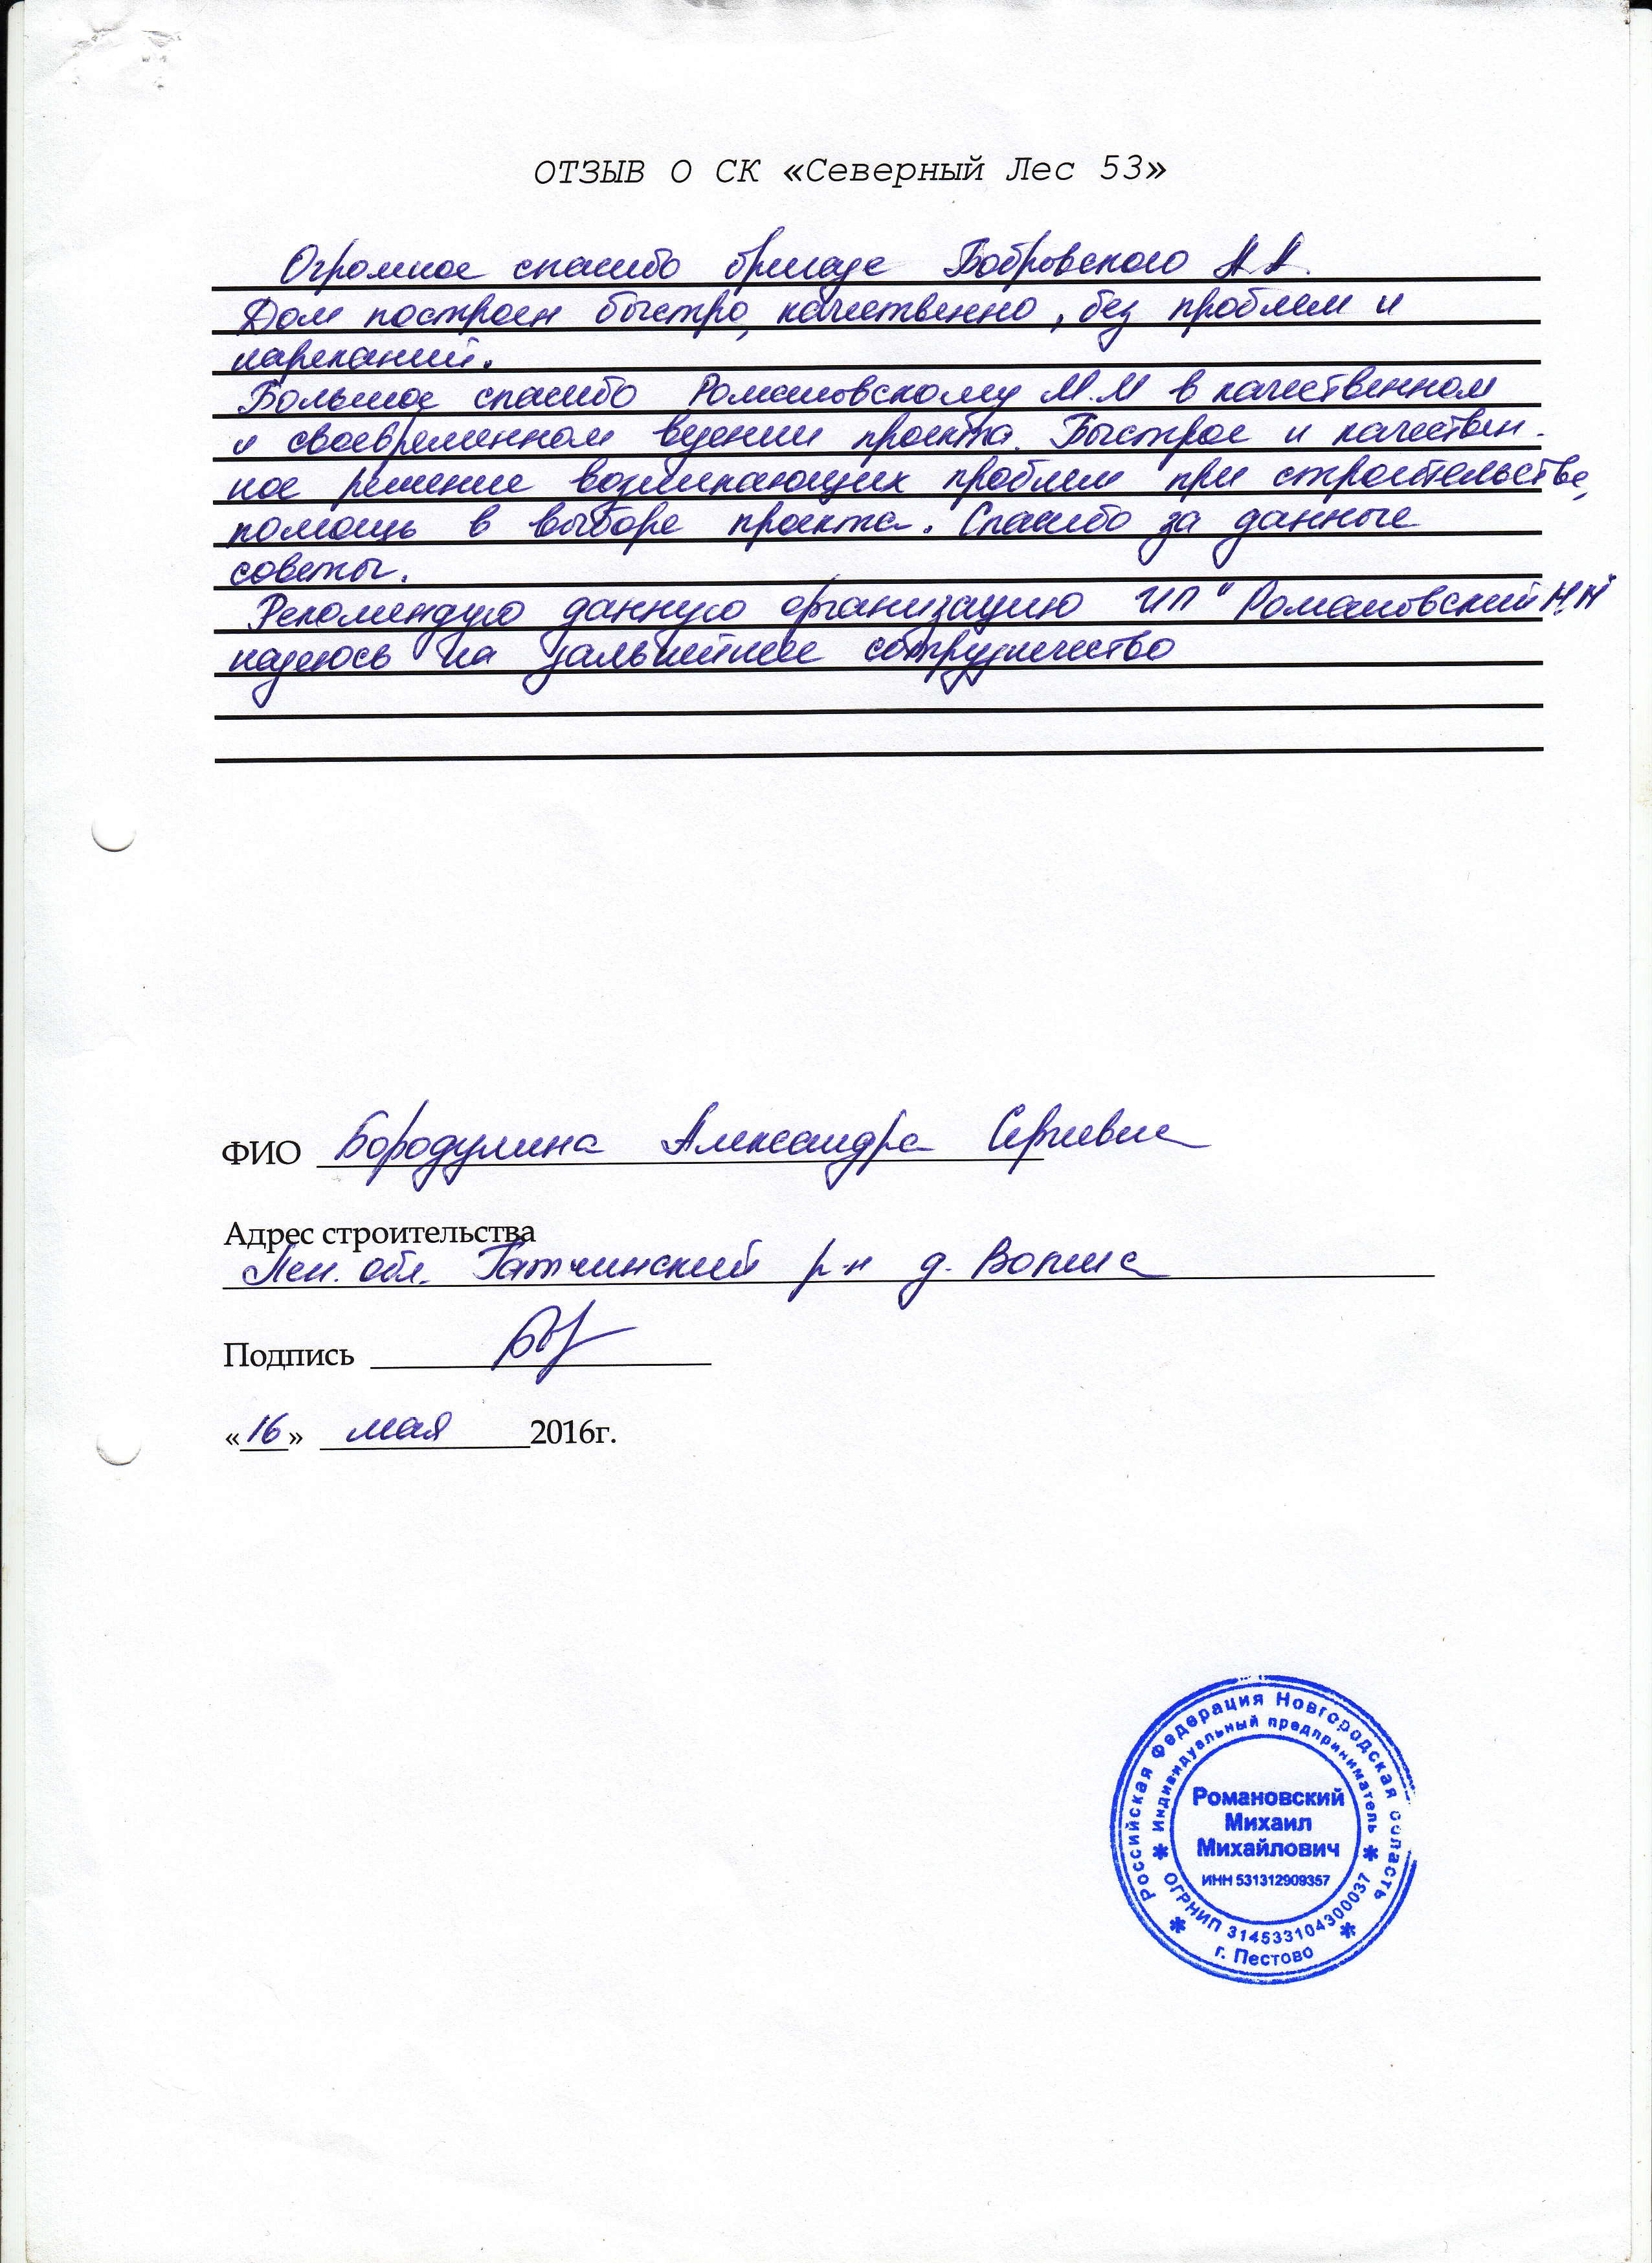 ОТЗЫВ О СК «Северный Лес 53»
Огромное спасибо бригаде Бобровского А А.
Дом построен быстро, качественно, без проблем и
нареканий.
Большое спасибо Романовскому М.М в качественном
и своевременном ведении проекта. Быстрое и качествен-
ное решение возникающих проблем при строительстве,
помощь в выборе проекта. Спасибо за данные
советы.
Рекомендую данную организацию ИП "Романовский М.М"
надеюсь на дальнейшее сотрудничество
ФИО Бородулина Александра Сергеевна
Адрес строительства
Лен. обл. Гатчинский р-н д. Вопша
Подпись
«16» мая 2016г.
Российская Федерация Новгородская область
Индивидуальный предприниматель
Романовский
Михаил
Михайлович
ИНН 531312909357
ОГРНИП 314533104300037
г. Пестово